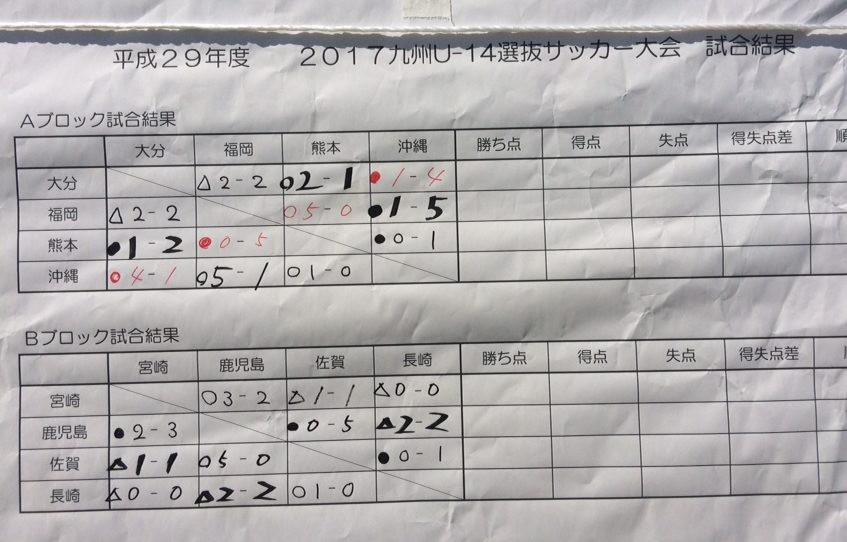 平成29年度 2017九州U-14選抜サッカー大会 試合結果
Aブロック試合結果
大分 福岡 熊本 沖縄 勝ち点 得点 失点 得失点差 順
大分 △2-2 ○2-1 ●1-4
福岡 △2-2 ○5-0 ●1-5
熊本 ●1-2 ●0-5 ●0-1
沖縄 ○4-1 ○5-1 ○1-0
Bブロック試合結果
宮崎 鹿児島 佐賀 長崎 勝ち点 得点 失点 得失点差
宮崎 ○3-2 △1-1 △0-0
鹿児島 ●2-3 ●0-5 △2-2
佐賀 △1-1 ○5-0 ●0-1
長崎 △0-0 △2-2 ○1-0